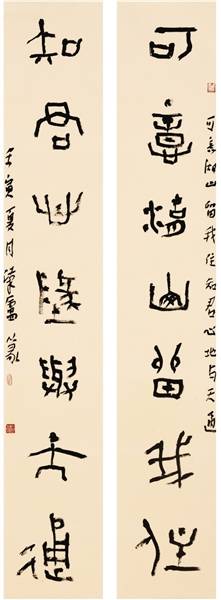 可意湖山留我住
可意湖山留我住知君心地与天通
知君心地與天通
壬寅夏月篆